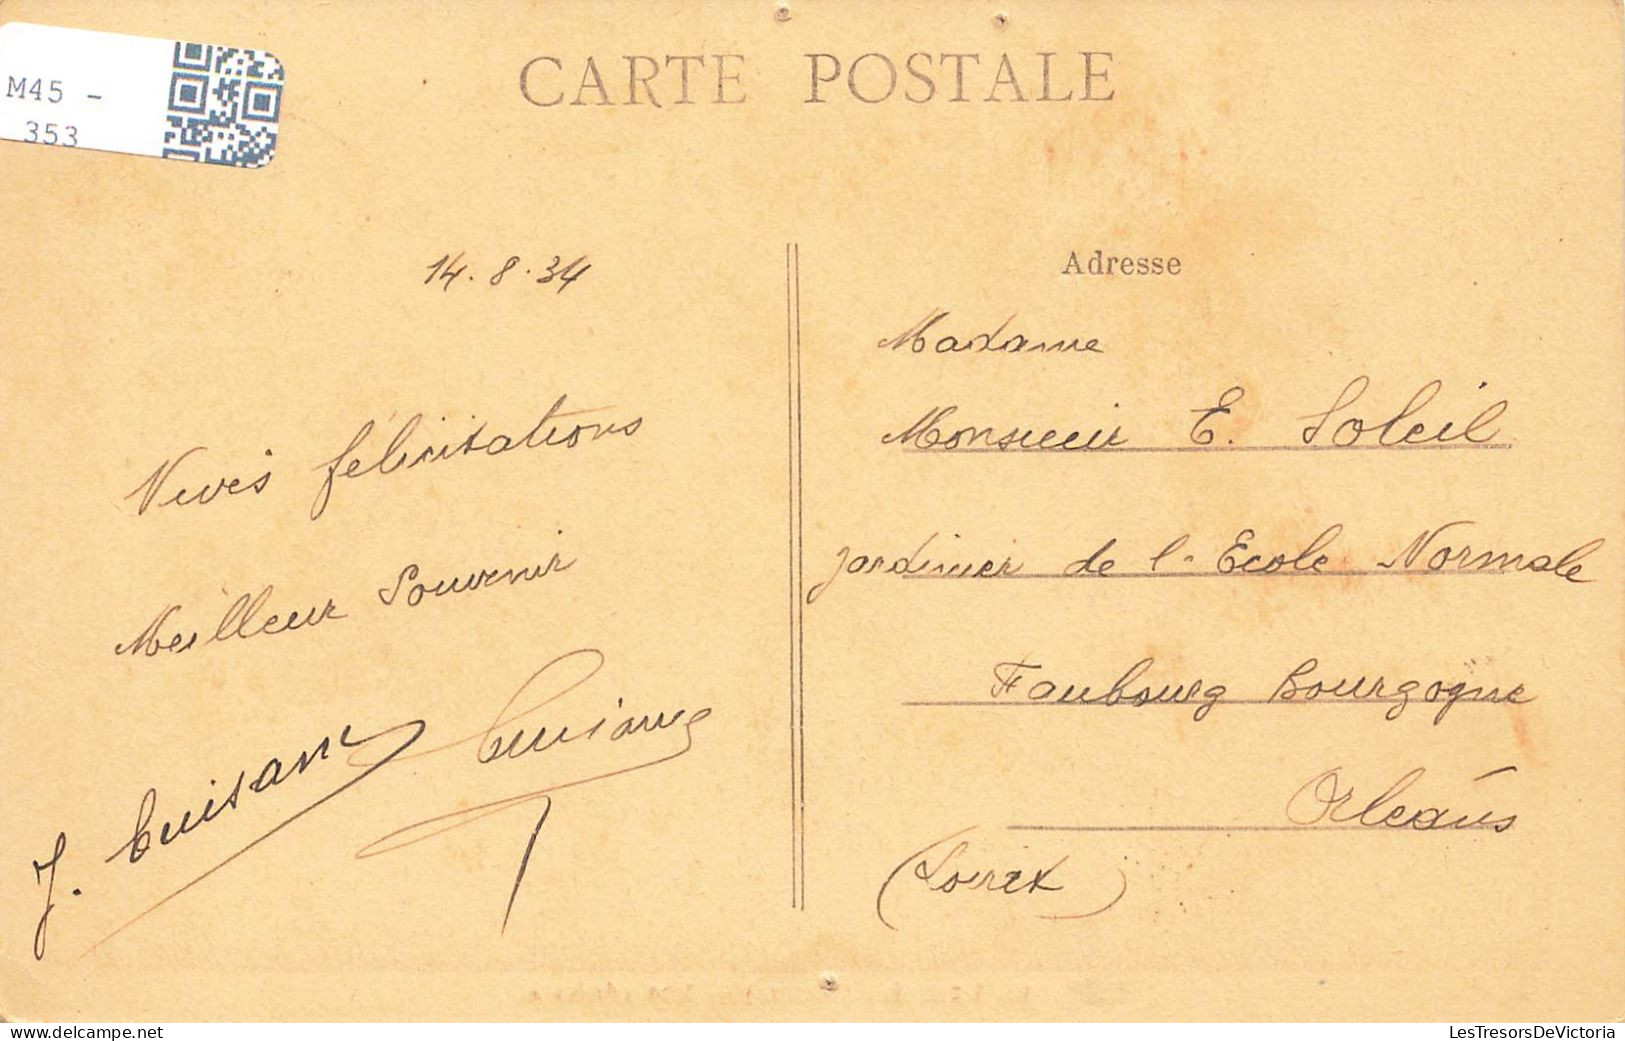 M45 -
353
CARTE POSTALE
14.8.34
Vives félicitations
Meilleur Souvenir
J.
Adresse
Madame
Monsieur E. Soleil
Jardinier de l'Ecole Normale
Faubourg Bourgogne
Orléans
(Loiret)
LesTresorsDeVictoria